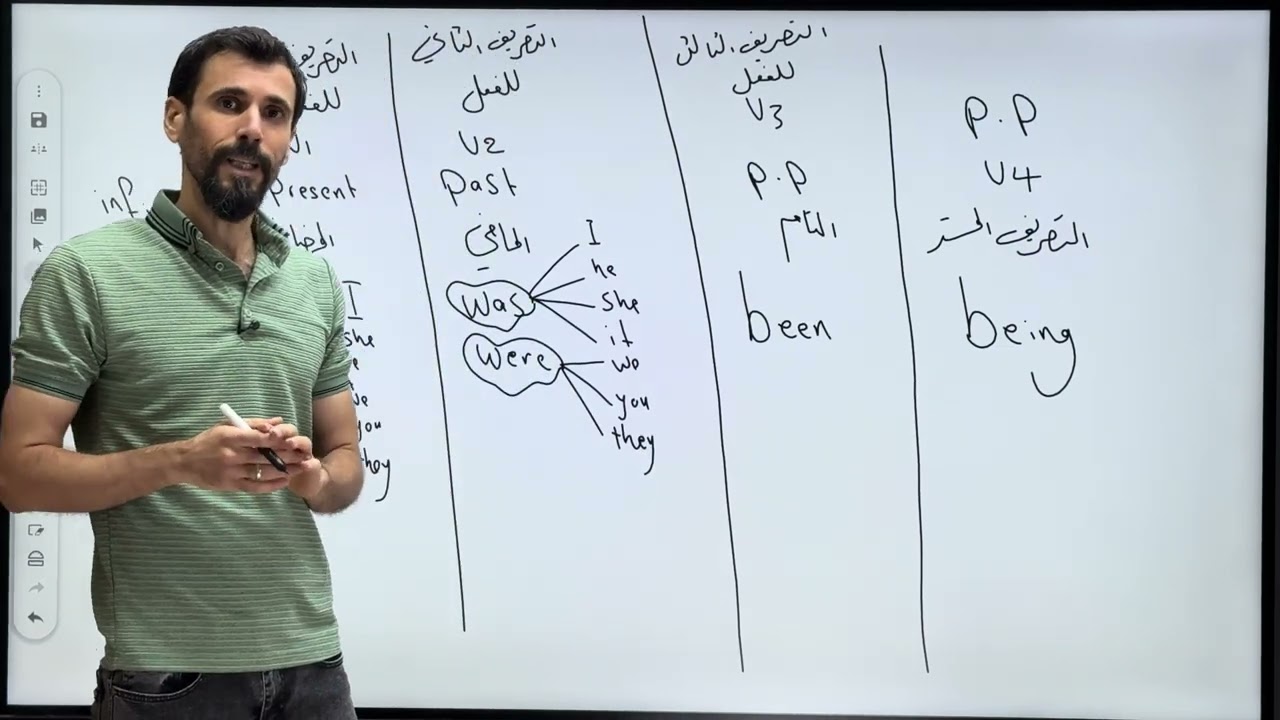 inf.
Present
I
she
you
they
التصريف الثاني
للفعل
V2
Past
الماضي
was
I
he
she
it
were
we
you
they
التصريف الثالث
للفعل
V3
P.P
التام
been
P.P
V4
التصريف المستمر
being